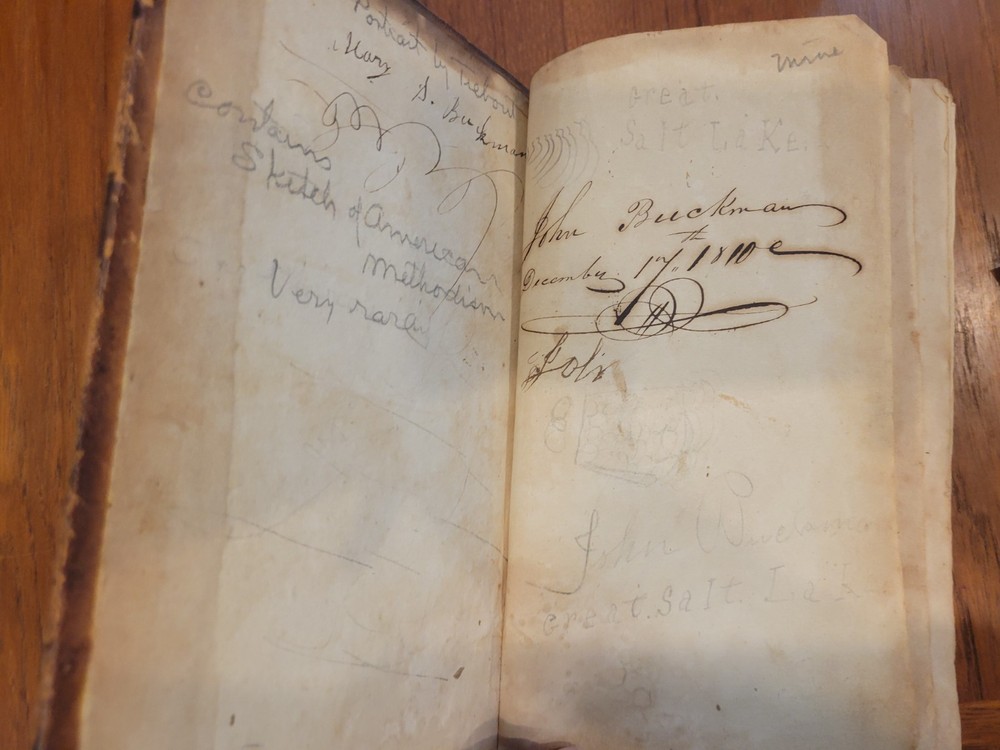 Portrait by Tiebout
Mary S. Buckman
Contains
Sketch of American
Methodism
Very rare
Great.
Salt Lake.
John Buckman
December 17th 1810
Joh
John Buckman
Great. Salt. Lak